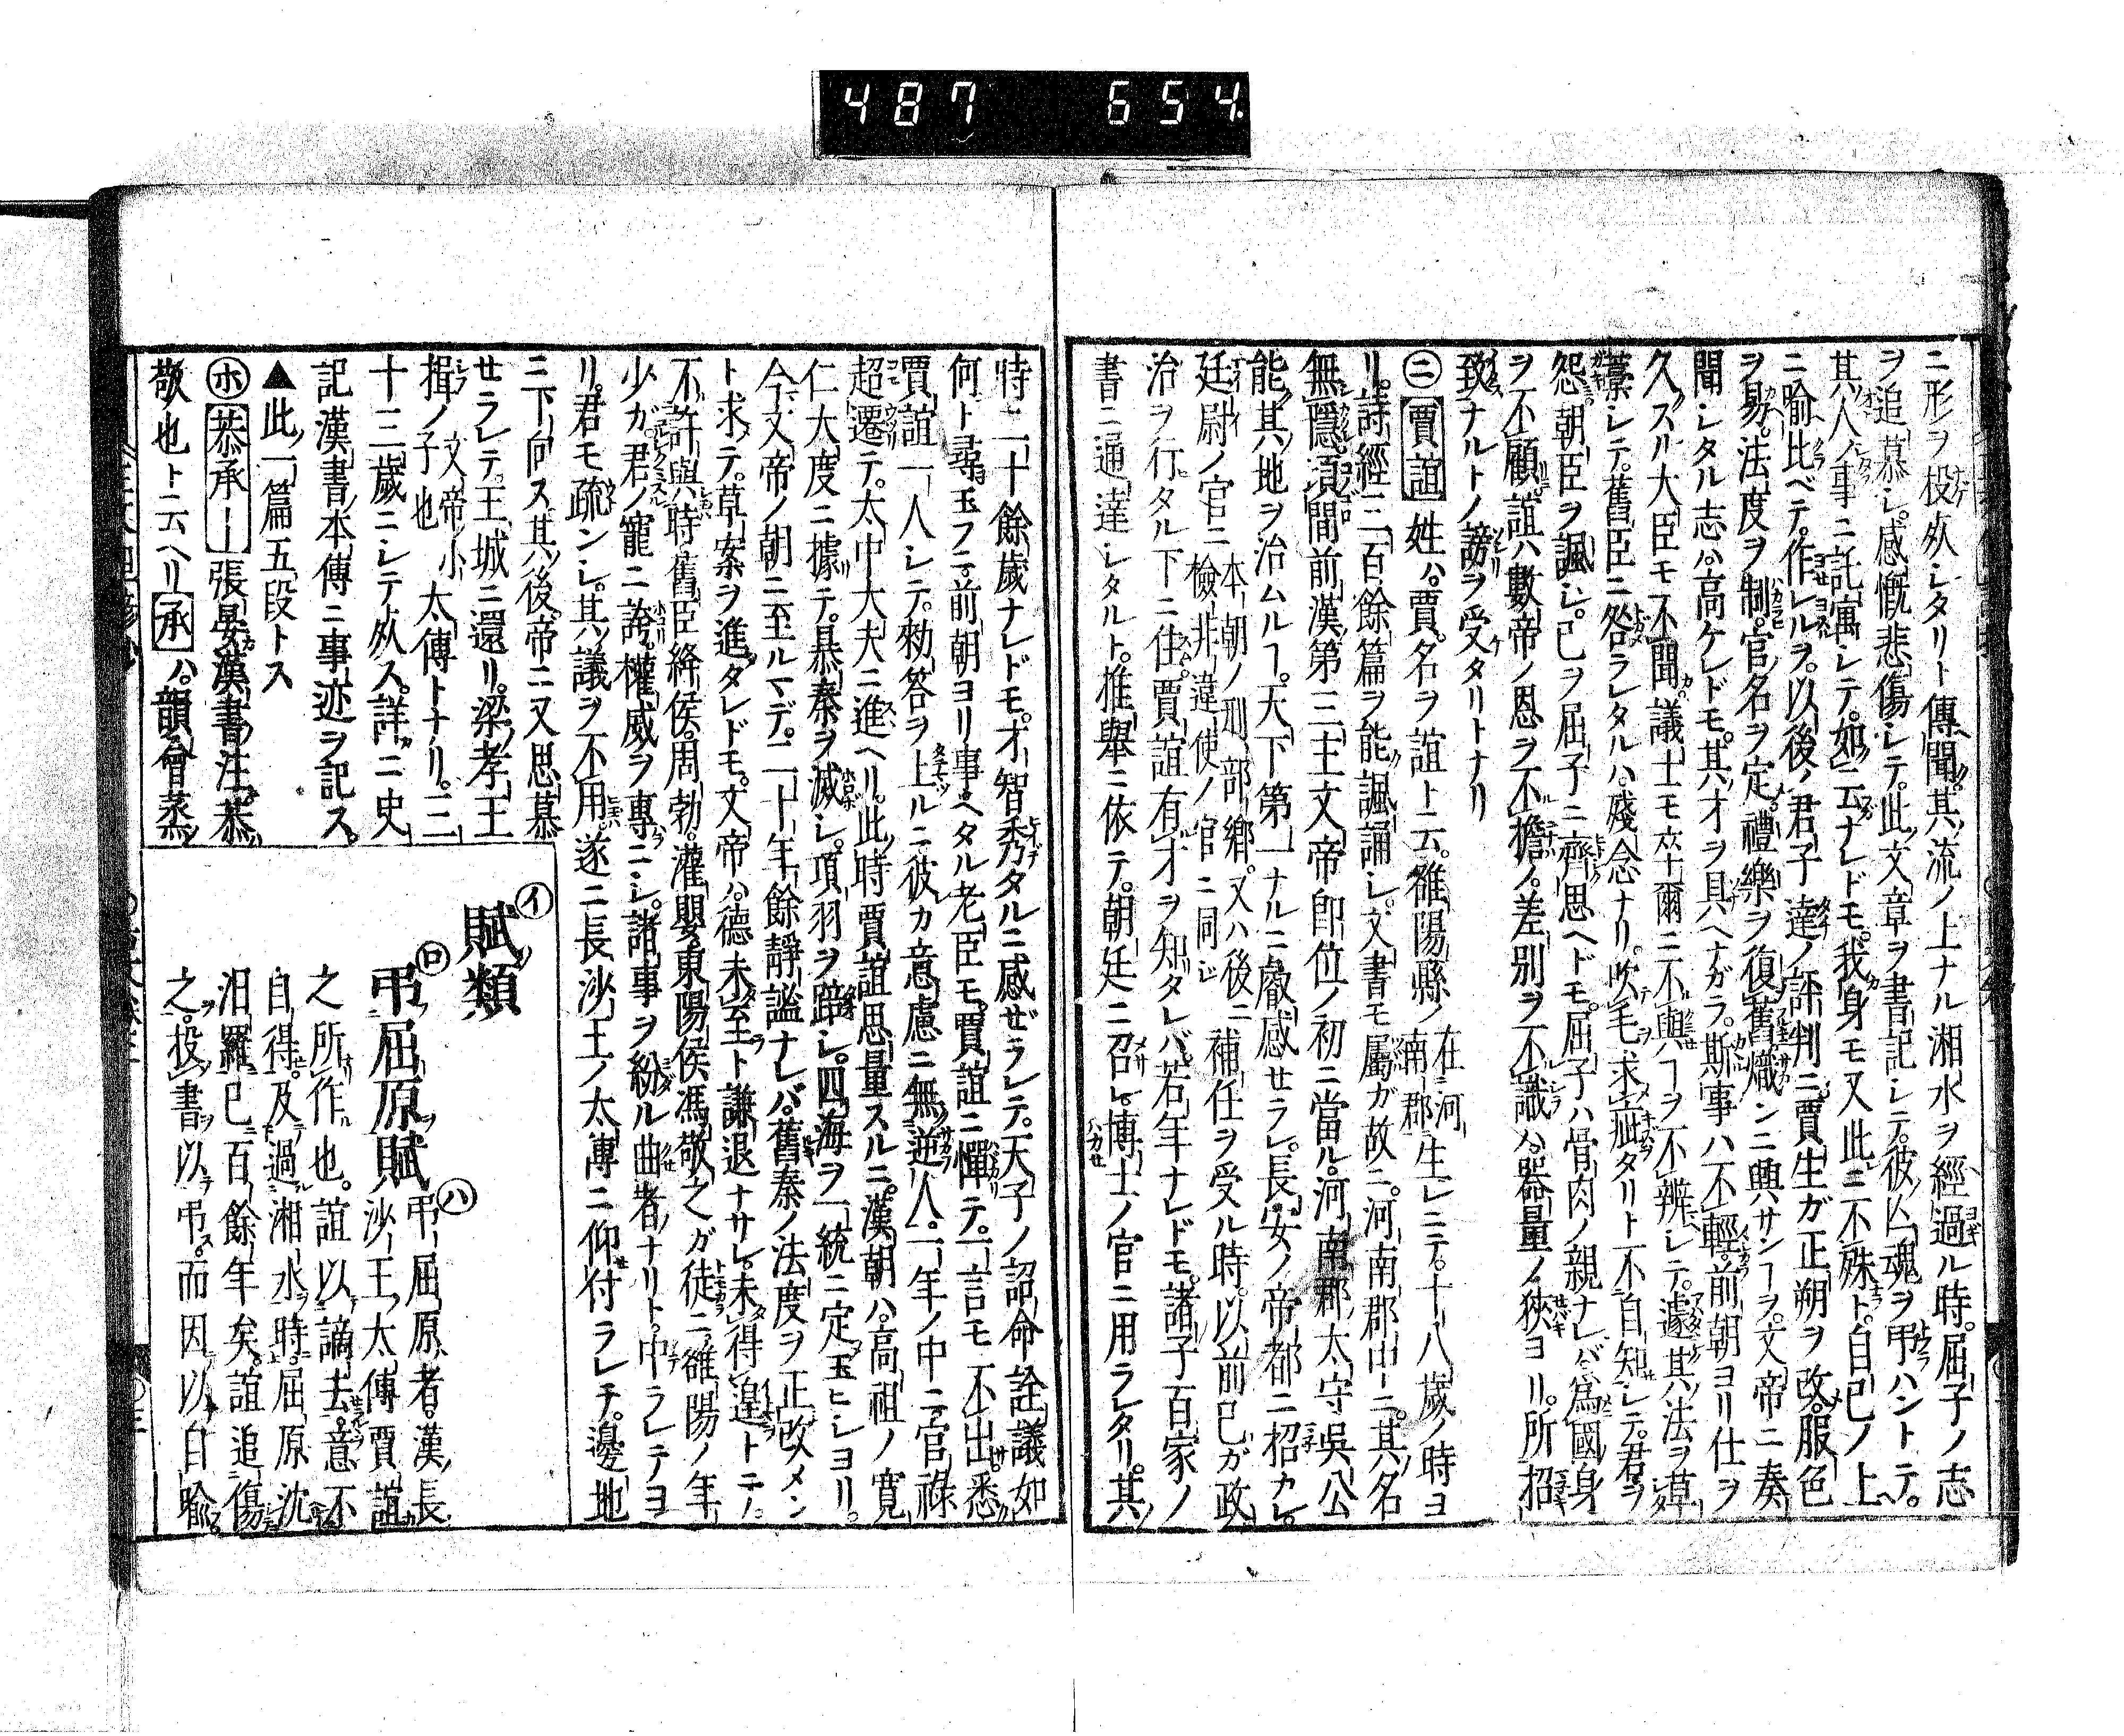 487 654
ニ形ヲ投ケ𣦸シタリト傳聞ク其流ノ上ナル湘水ヲ經過ル時屈子ノ志
ヲ追慕シ感慨悲傷シテ此文章ヲ書記シテ彼亾魂ヲ弔ハントテ
其人ノ事ニ託寓シテ如云ナレドモ我身モ又此ニ不殊ト自己ノ上
ニ喩比ベテ作レルヲ以後ノ君子達ノ評判ニ賈生ガ正朔ヲ改メ服色
ヲ易法度ヲ制官名ヲ定禮樂ヲ復舊熾ンニ興サンヿヲ文帝ニ奏
聞シタル志ハ高ケレドモ其才ヲ具ヘナガラ斯事ハ不輕前朝ヨリ仕ヲ
久スル大臣モ不聞議士モ卒爾ニ不與ヿヲ不辨シテ遽其法ヲ草
藁シテ舊臣ニ咎ラレタルハ殘念ナリ吹毛求疵タリト不自知シテ君ヲ
怨朝臣ヲ諷シ己ヲ屈子ニ齊思ヘドモ屈子ハ骨肉ノ親ナレバ爲國身
ヲ不顧誼ハ數帝ノ恩ヲ不擔ノ差別ヲ不識ハ器量ノ狹ヨリ所招
致ナルトノ謗ヲ受タリトナリ
㊁賈誼 姓ハ賈名ヲ誼ト云雒陽縣ノ在河南郡生レニテ十八歳ノ時ヨ
リ詩經三百餘篇ヲ能諷誦シ文書モ屬ガ故ニ河南郡中ニ其名
無隱項間前漢第三主文帝即位ノ初ニ當ル河南郡ノ太守吳公
能其地ヲ治ムルヿ天下第一ナルニ叡感セラレ長安ノ帝都ニ招カレ
廷尉ノ官ニ本朝ノ刑部鄕又ハ後ニ檢非違使ノ官ニ同シ補任ヲ受ル時以前己ガ政
治ヲ行タル下ニ住賈誼有才ヲ知タレバ若年ナレドモ諸子百家ノ
書ニ通達シタルト推擧ニ依テ朝廷ニ召レ博士ノ官ニ用ラレタリ其
時二十餘歳ナレドモ才智秀タルニ感ぜラレテ天子ノ詔命詮議如
何ト尋玉フニ前朝ヨリ事ヘタル老臣モ賈誼ニ憚テ一言モ不出悉
賈誼一人シテ勅答ヲ上ルニ彼カ意慮ニ無逆人一年ノ中ニ官祿
超遷テ太中大夫ニ進ヘリ此時賈誼思量スルニ漢朝ハ高祖ノ寛
仁大度ニ據テ暴秦ヲ滅シ項羽ヲ踣シ四海ヲ一統ニ定玉ヒシヨリ
今文帝ノ朝ニ至ルマデ二十年餘靜謐ナレバ舊秦ノ法度ヲ正改メン
ト求テ草案ヲ進タレドモ文帝ハ德未至ト謙退ナサレ未得遑トニノ
不許與時舊臣絳侯周勃灌嬰東陽侯馮敬之ガ徒ニ雒陽ノ年
少ガ君ノ寵ニ誇權威ヲ專ニシ諸事ヲ紛ル曲者ナリト中ラレテヨ
リ君モ疏ンシ其議ヲ不用遂ニ長沙王ノ太傳ニ仰付ラレテ邊地
ニ下向ス其後帝ニ又思慕
セラレテ王城ニ還リ梁孝王
揖ノ文帝小子也太傳トナリ三
十三歳ニシテ𣦸ス詳ニ史
記漢書ノ本傳ニ事迹ヲ記ス
▲此一篇五段トス
㋭恭承― 張晏漢書注恭
敬也ト云ヘリ 承 ハ韻會蒸
㋑賦類
㋺弔屈原賦㋩弔屈原者漢長
沙王太傳賈誼
之所作也誼以謫去意不
自得及過湘水時屈原沈
汨羅已百餘年矣誼追傷
之投書以弔而因以自喩